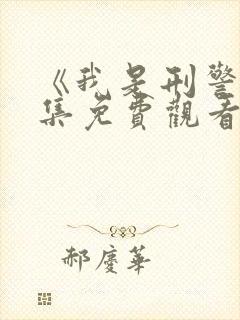 《我是刑警
集免費觀看
郝慶華